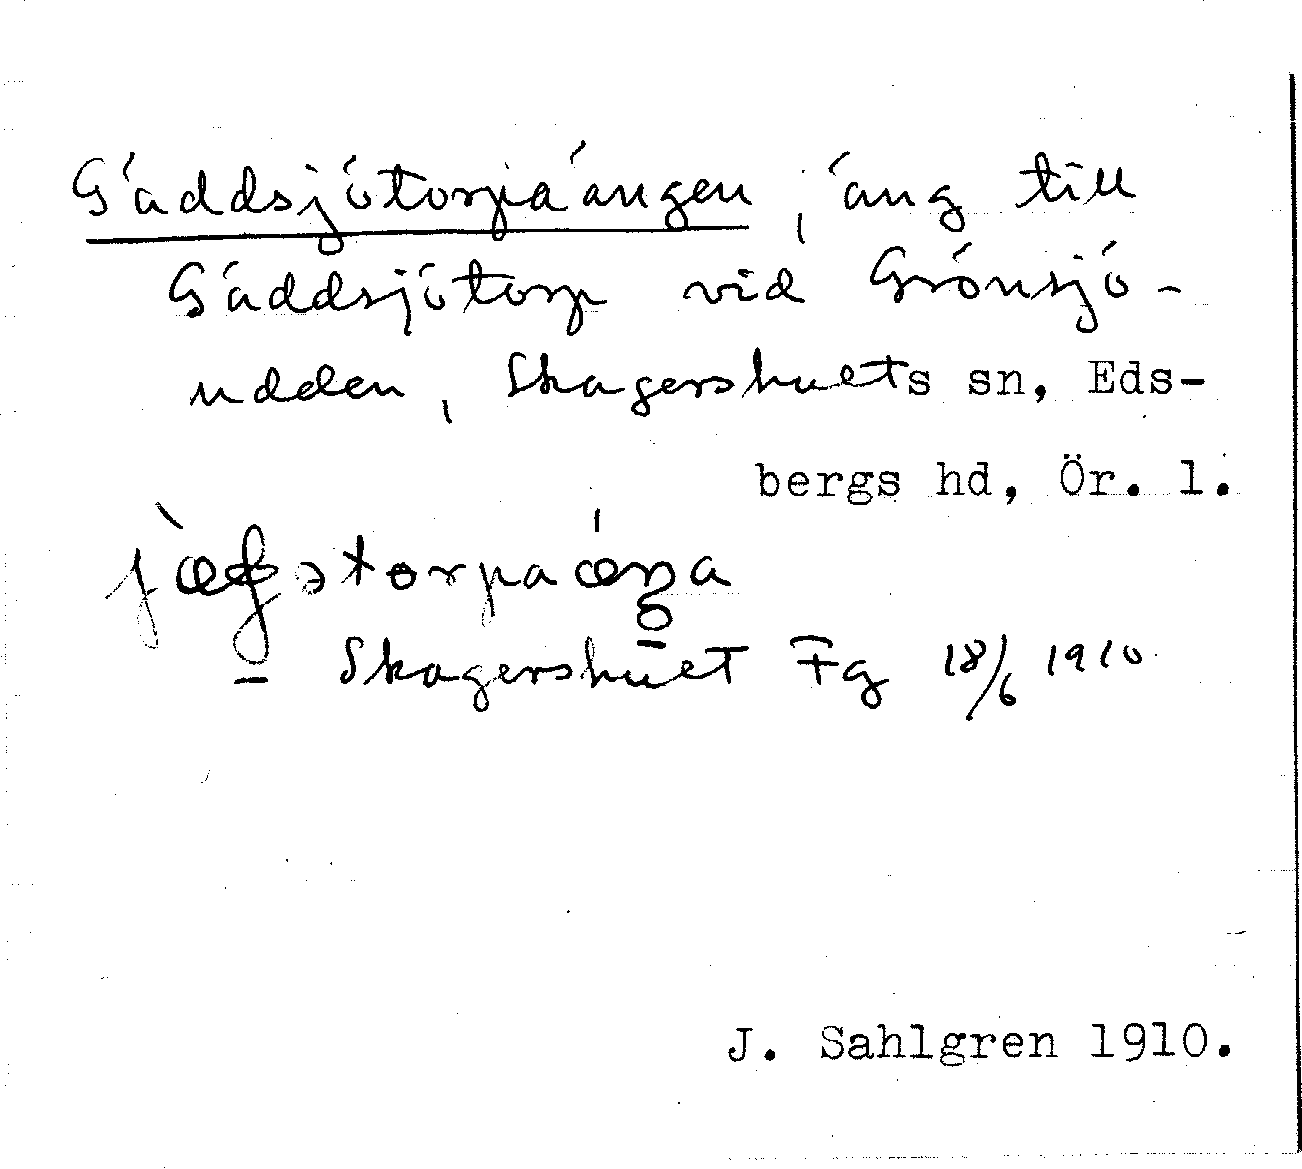 Gäddsjötorpaängen, äng till
Gäddsjötorp vid Grönsjö-
udden, Skagershults sn, Eds-
bergs hd, Ör. l.
Skagershult Fg 18/6 1910
J. Sahlgren 1910.